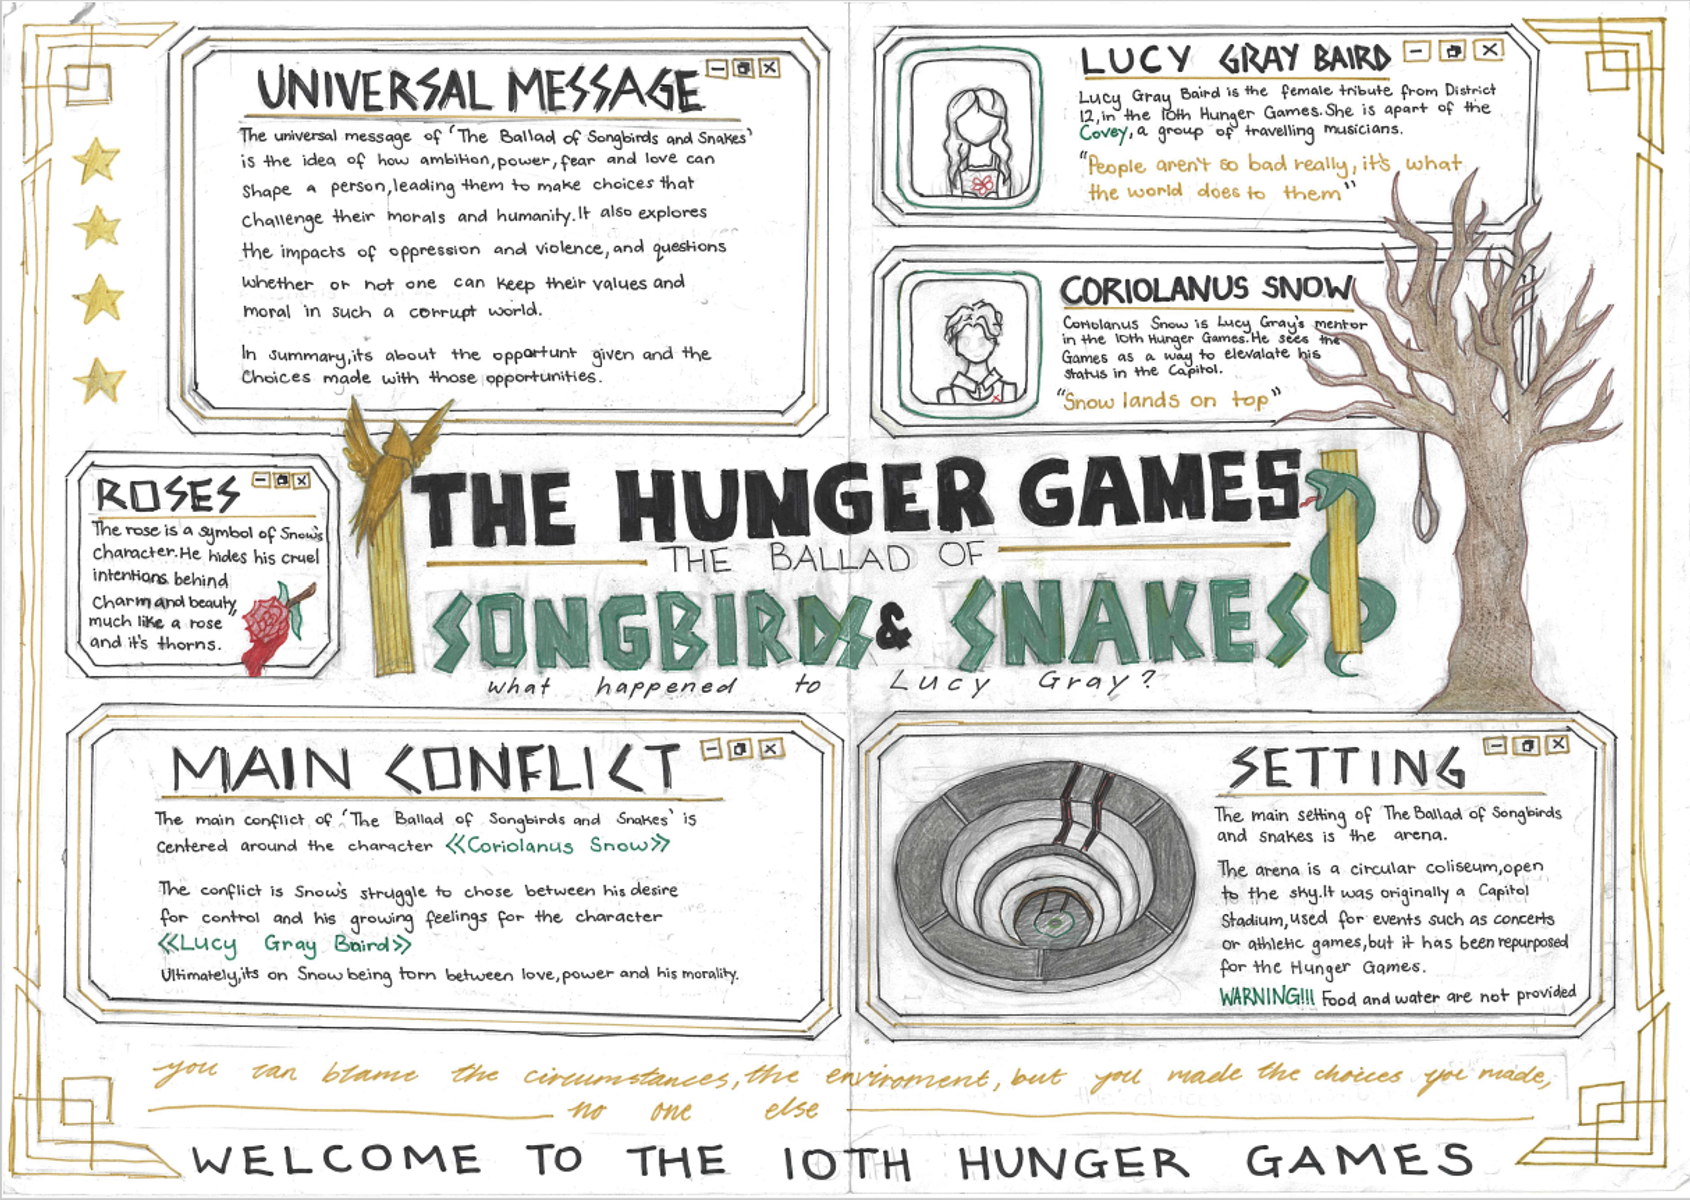 UNIVERSAL MESSAGE
The universal message of 'The Ballad of Songbirds and Snakes'
is the idea of how ambition, power, fear and love can
shape a person, leading them to make choices that
challenge their morals and humanity. It also explores
the impacts of oppression and violence, and questions
whether or not one can keep their values and
moral in such a corrupt world.
In summary, its about the opportunt given and the
Choices made with those opportunities.
LUCY GRAY BAIRD
Lucy Gray Baird is the female tribute from District
12, in the 10th Hunger Games. She is apart of the
Covey, a group of travelling musicians.
"People aren't so bad really, it's what
the world does to them"
CORIOLANUS SNOW
Coriolanus Snow is Lucy Gray's mentor
in the 10th Hunger Games. He sees the
Games as a way to elevalate his
status in the Capitol.
"Snow lands on top"
ROSES
The rose is a symbol of Snow's
character. He hides his cruel
intentions behind
Charm and beauty,
much like a rose
and it's thorns.
THE HUNGER GAMES
THE BALLAD OF
SONGBIRDS & SNAKES
what happened to Lucy Gray?
MAIN CONFLICT
The main conflict of 'The Ballad of Songbirds and Snakes' is
centered around the character <<Coriolanus Snow>>
The conflict is Snow's struggle to chose between his desire
for control and his growing feelings for the character
<<Lucy Gray Baird>>
Ultimately, its on Snow being torn between love, power and his morality.
SETTING
The main setting of The Ballad of Songbirds
and snakes is the arena.
The arena is a circular coliseum, open
to the sky. It was originally a Capitol
Stadium, used for events such as concerts
or athletic games, but it has been repurposed
for the Hunger Games.
WARNING!!! Food and water are not provided
you can blame the circumstances, the enviroment, but you made the choices you made,
no one else
WELCOME TO THE 10TH HUNGER GAMES